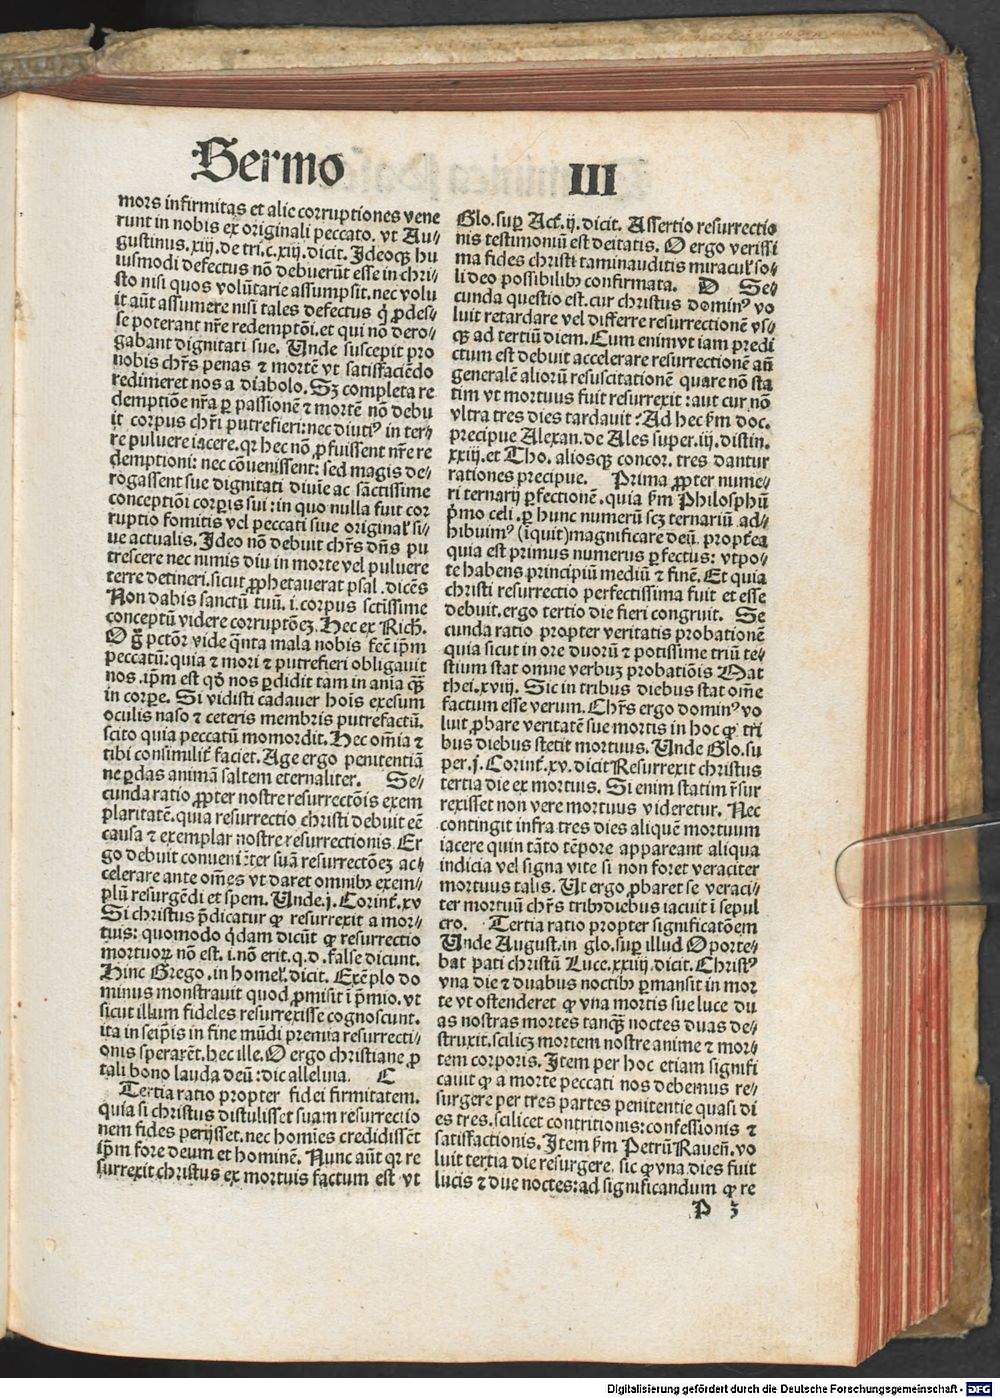 Sermo III
mors infirmitas et alie corruptiones vene
runt in nobis ex originali peccato. vt Au⸗
gustinus. xiij. de tri. c. xiij. dicit. Ideoqꝫ hu
iusmodi defectus nō debuerūt esse in chri⸗
sto nisi quos volūtarie assumpsit. nec volu
it aūt assumere nisi tales defectus q̇ ꝓdes⸗
se poterant nr̄e redemptōi. et qui nō dero⸗
gabant dignitati sue. Unde suscepit pro
nobis chr̄s penas ⁊ mortē vt satisfaciēdo
redimeret nos a diabolo. Sꝫ completa re
demptiōe nr̄a ꝑ passionē ⁊ mortē nō debu
it corpus chr̄i putrefieri: nec diutiꝰ in ter⸗
re puluere iacere. qꝛ hec nō ꝓfuissent nr̄e re
demptioni: nec cōuenissent: sed magis de⸗
rogassent sue dignitati diuīe ac sāctissime
conceptiōi corꝑis sui: in quo nulla fuit cor
ruptio fomitis vel peccati siue original̕ si⸗
ue actualis. Ideo nō debuit chr̄s dn̄s pu
trescere nec nimis diu in morte vel puluere
terre detineri. sicut ꝓphetauerat psal. dicēs
Non dabis sanctū tuū. i. corpus sctissime
conceptū videre corruptōeꝫ. Hec ex Rich̄.
O g̊ pctōr vide q̄nta mala nobis fec̄ ip̄m
peccatū: quia ⁊ mori ⁊ putrefieri obligauit
nos. ip̄m est qd̓ nos ꝑdidit tam in aīa q̄ꝫ
in corꝑe. Si vidisti cadauer hoīs exesum
oculis naso ⁊ ceteris membris putrefactū.
scito quia peccatū momordit. Hec om̄ia ⁊
tibi consimilit̄ faciet. Age ergo penitentiā
ne ꝑdas animā saltem eternaliter. Se⸗
cunda ratio ꝓpter nostre resurrectōis exem
plaritatē. quia resurrectio christi debuit eē
causa ⁊ exemplar nostre resurrectionis. Er
go debuit conuenīeter suā resurrectōeꝫ ac⸗
celerare ante om̄es vt daret omnibꝫ exem⸗
plū resurgēdi et spem. Unde. j. Corint̄. xv
Si christus p̄dicatur ꝙ resurrexit a mor⸗
tuis: quomodo q̇dam dicūt ꝙ resurrectio
mortuoꝝ nō est. i. nō erit. q. d. false dicunt.
Hinc Grego. in homel̕. dicit. Exēplo do
minus monstrauit quod ꝓmisit ī p̄mio. vt
sicut illum fideles resurrexisse cognoscunt.
ita in seip̄is in fine mūdi premia resurrecti⸗
onis sperarēt. hec ille. O ergo christiane ꝓ
tali bono lauda deū: dic alleluia. C
Tertia ratio propter fidei firmitatem.
quia si christus distulisset suam resurrectio
nem fides perijsset. nec homīes credidissēt
ip̄m fore deum et hominē. Nunc aūt qꝛ re
surrexit christus ex mortuis factum est vt
Glo. suꝑ Act̄. ij. dicit. Assertio resurrectio
nis testimoniū est deitatis. O ergo verissi
ma fides christi tam inauditis miracul̕ so⸗
li deo possibilibꝫ confirmata. D Se⸗
cunda questio est. cur christus dominꝰ vo
luit retardare vel differre resurrectionē vs⸗
qꝫ ad tertiū diem. Cum enim vt iam predi
ctum est debuit accelerare resurrectionē an̄
generalē aliorū resuscitationē quare nō sta
tim vt mortuus fuit resurrexit: aut cur nō
vltra tres dies tardauit: Ad hec ẜm doc.
precipue Alexan. de Ales super. iij. distin.
xxiij. et Tho. aliosqꝫ concor. tres dantur
rationes precipue. Prima ꝓpter nume⸗
ri ternarij ꝑfectionē. quia ẜm Philosophū
p̄mo celi. ꝑ hunc numerū scꝫ ternariū ad⸗
hibuimꝰ (īquit) magnificare deū. propt̄ea
quia est primus numerus ꝑfectus: vtpo⸗
te habens principiū mediū ⁊ finē. Et quia
christi resurrectio perfectissima fuit et esse
debuit. ergo tertio die fieri congruit. Se
cunda ratio propter veritatis probationē
quia sicut in ore duorū ⁊ potissime triū te⸗
stium stat omne verbuꝫ probatiōis Mat
thei. xviij. Sic in tribus diebus stat om̄e
factum esse verum. Chr̄s ergo dominꝰ vo
luit ꝓbare veritatē sue mortis in hoc ꝙ tri
bus diebus stetit mortuus. Unde Glo. su
per. j. Corint̄. xv. dicit Resurrexit christus
tertia die ex mortuis. Si enim statim r̄sur
rexisset non vere mortuus videretur. Nec
contingit infra tres dies aliquē mortuum
iacere quin tāto tēpore appareant aliqua
indicia vel signa vite si non foret veraciter
mortuus talis. Ut ergo ꝓbaret se veraci⸗
ter mortuū chr̄s tribꝫ diebus iacuit ī sepul
cro. Tertia ratio propter significatōem
Unde August. in glo. suꝑ illud Oporte⸗
bat pati christū Luce. xxiiij. dicit. Christꝰ
vna die ⁊ duabus noctibꝫ ꝑmansit in mor
te vt ostenderet ꝙ vna mortis sue luce du
as nostras mortes tanq̄ꝫ noctes duas de⸗
struxit. scilicꝫ mortem nostre anime ⁊ mor⸗
tem corporis. Item per hoc etiam signifi
cauit ꝙ a morte peccati nos debemus re⸗
surgere per tres partes penitentie quasi di
es tres. scilicet contritionis: confessionis ⁊
satisfactionis. Item ẜm Petrū Rauen̄. vo
luit tertia die resurgere, sic ꝙ vna dies fuit
lucis ⁊ due noctes: ad significandum ꝙ re
P 3
Digitalisierung gefördert durch die Deutsche Forschungsgemeinschaft - DFG